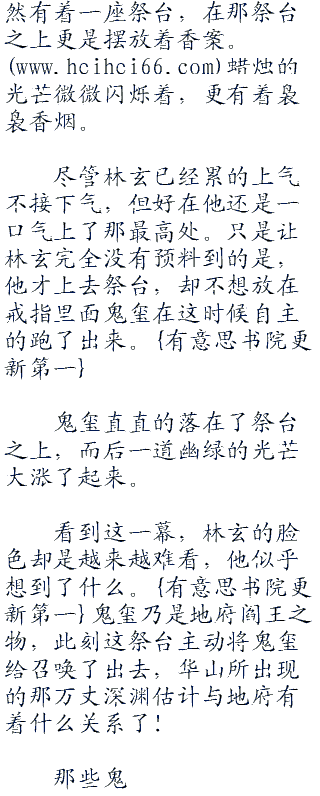 然有着一座祭台，在那祭台
之上更是摆放着香案。
(www.hcihci66.com)蜡烛的
光芒微微闪烁着，更有着袅
袅香烟。
尽管林玄已经累的上气
不接下气，但好在他还是一
口气上了那最高处。只是让
林玄完全没有预料到的是，
他才上去祭台，却不想放在
戒指里面鬼玺在这时候自主
的跑了出来。{有意思书院更
新第一}
鬼玺直直的落在了祭台
之上，而后一道幽绿的光芒
大涨了起来。
看到这一幕，林玄的脸
色却是越来越难看，他似乎
想到了什么。{有意思书院更
新第一}鬼玺乃是地府阎王之
物，此刻这祭台主动将鬼玺
给召唤了出去，华山所出现
的那万丈深渊估计与地府有
着什么关系了!
那些鬼